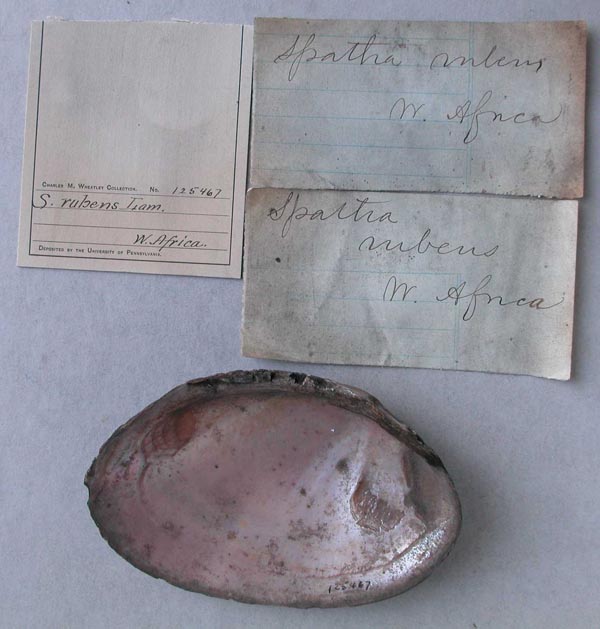 CHARLES M. WHEATLEY COLLECTION. No. 125467
S. rubens Lam.
W. Africa.
DEPOSITED BY THE UNIVERSITY OF PENNSYLVANIA.
Spatha rubens
W. Africa
Spatha
rubens
W. Africa
125467